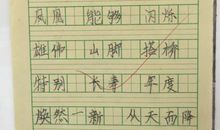 凤凰 能够 闪烁
雄伟 山脚 搭桥
特别 长寿 年度
焕然一新 从天而降